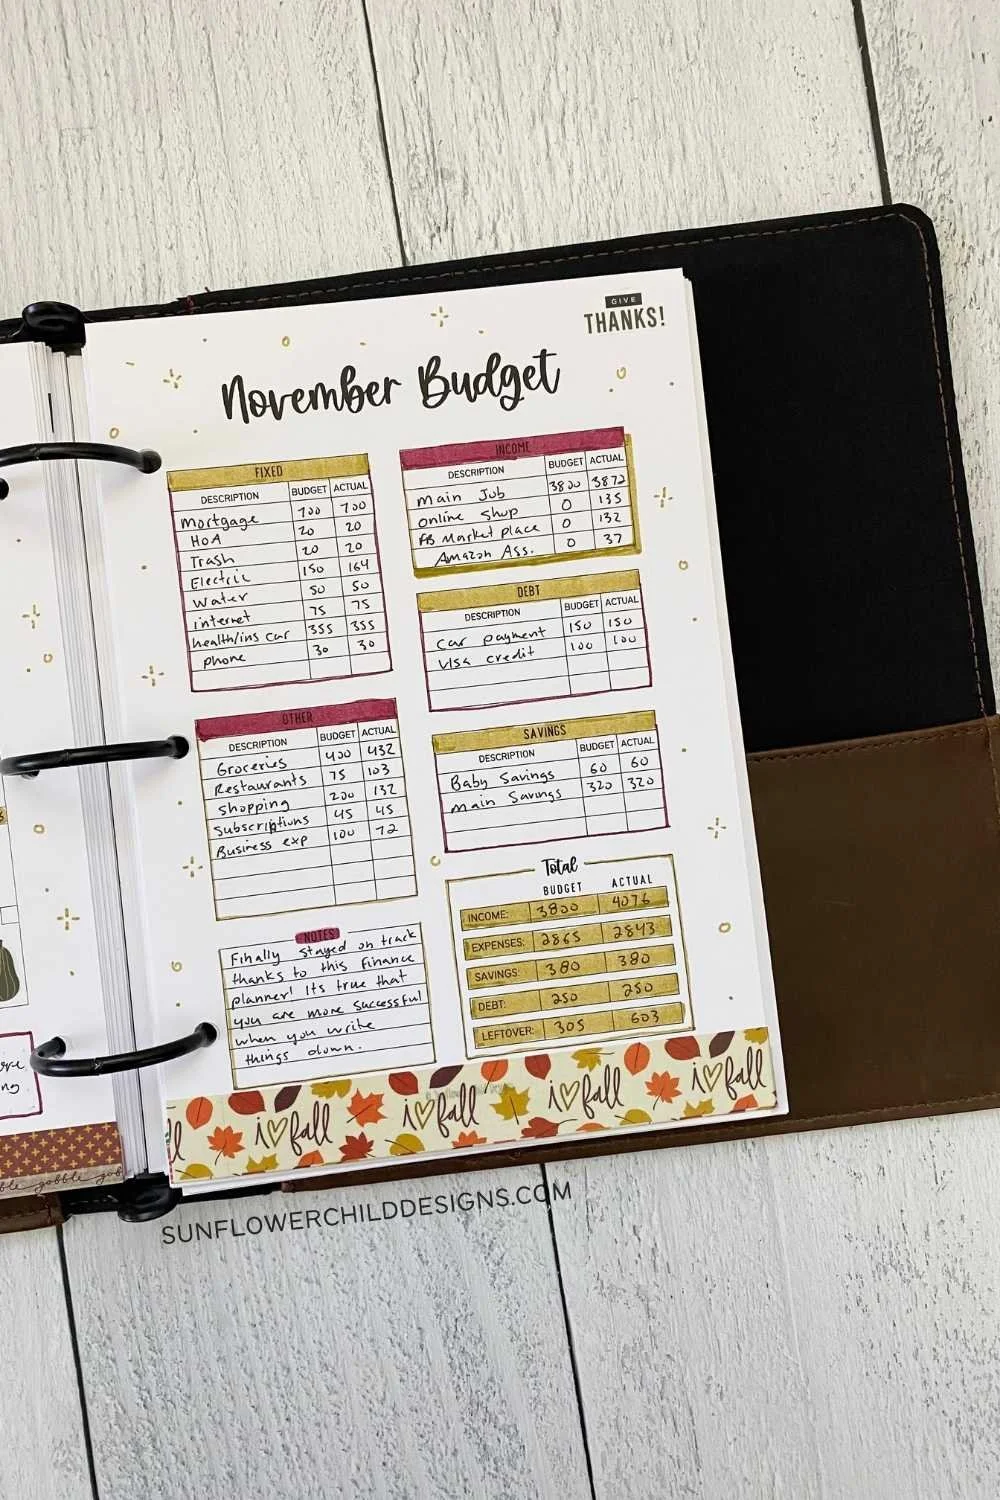 GIVE
THANKS!
November Budget
FIXED
DESCRIPTION BUDGET ACTUAL
Mortgage 700 700
HOA 20 20
Trash 20 20
Electric 150 164
Water 50 50
internet 75 75
health/ins car 355 355
phone 30 30
INCOME
DESCRIPTION BUDGET ACTUAL
Main Job 3800 3872
Online shop 0 135
FB Market place 0 132
Amazon Ass. 0 37
DEBT
DESCRIPTION BUDGET ACTUAL
Car payment 150 150
Visa credit 100 100
OTHER
DESCRIPTION BUDGET ACTUAL
Groceries 400 432
Restaurants 75 103
Shopping 200 132
Subscriptions 45 45
Business exp 100 72
SAVINGS
DESCRIPTION BUDGET ACTUAL
Baby Savings 60 60
Main Savings 320 320
NOTES
Finally stayed on track
thanks to this finance
planner! Its true that
you are more successful
when you write
things down.
Total
BUDGET ACTUAL
INCOME: 3800 4076
EXPENSES: 2865 2843
SAVINGS: 380 380
DEBT: 250 250
LEFTOVER: 305 603
i♡fall i♡fall i♡fall i♡fall
gobble
SUNFLOWERCHILDDESIGNS.COM